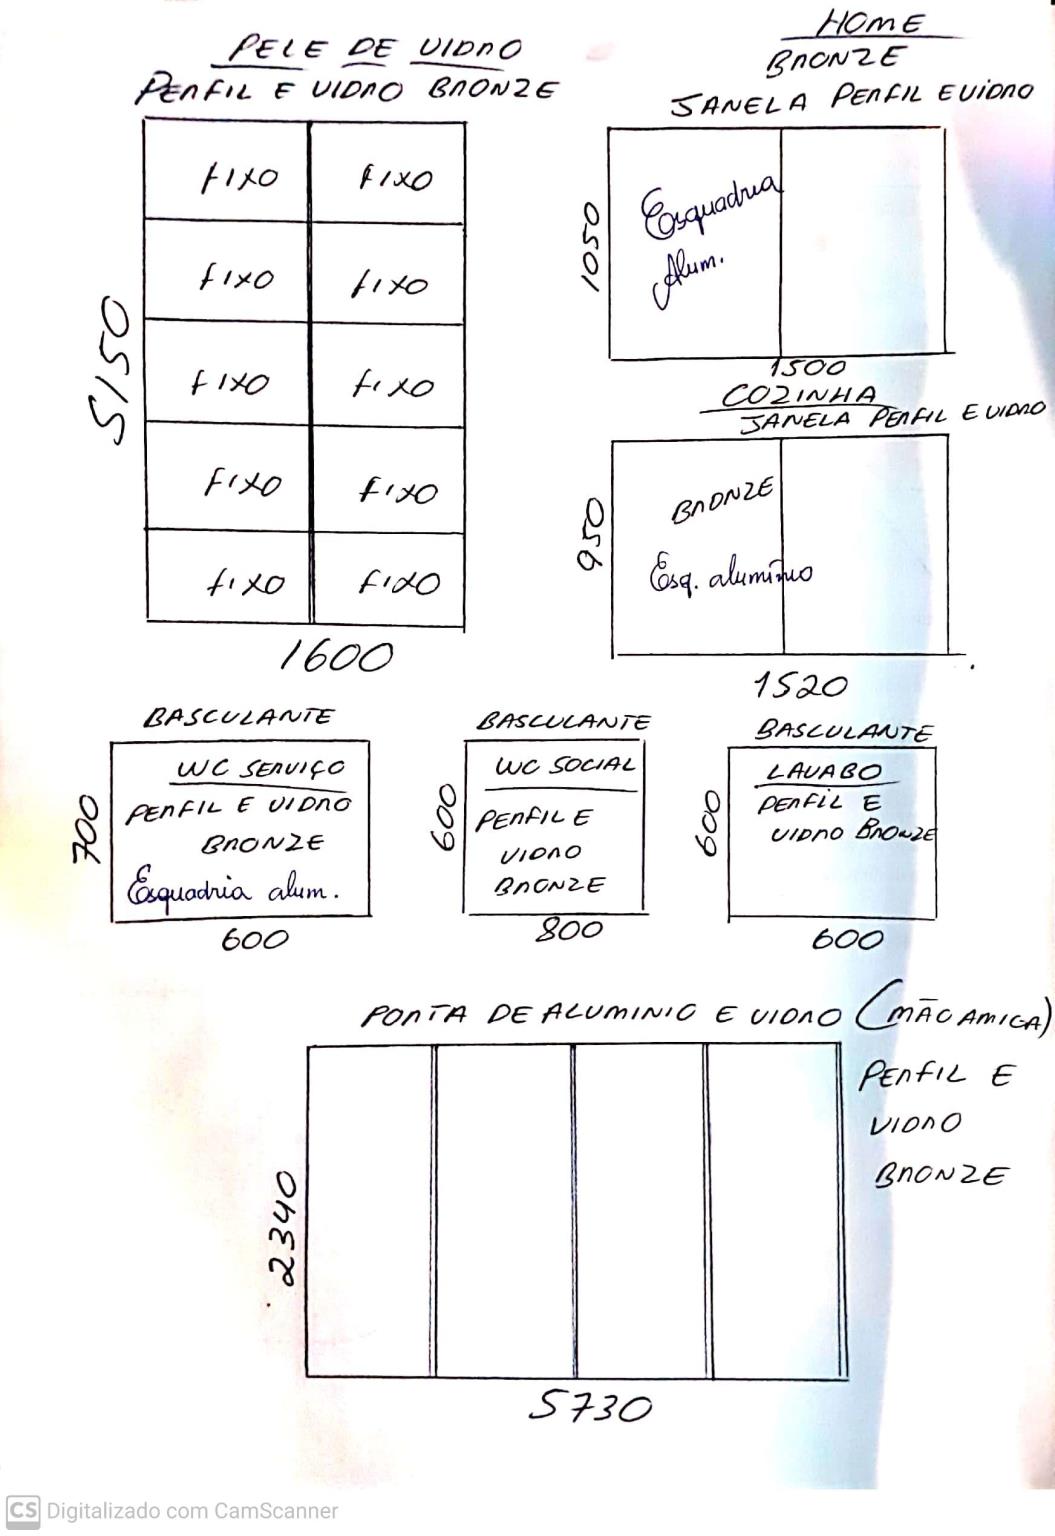 PELE DE VIDRO
PERFIL E VIDRO BRONZE
FIXO FIXO
FIXO FIXO
FIXO FIXO
FIXO FIXO
FIXO FIXO
5150
1600
HOME
BRONZE
JANELA PERFIL E VIDRO
Esquadria
Alum.
1050
1500
COZINHA
JANELA PERFIL E VIDRO
BRONZE
Esq. alumínio
950
1520
BASCULANTE
WC SERVIÇO
PERFIL E VIDRO
BRONZE
Esquadria alum.
700
600
BASCULANTE
WC SOCIAL
PERFIL E
VIDRO
BRONZE
600
800
BASCULANTE
LAVABO
PERFIL E
VIDRO BRONZE
600
600
PORTA DE ALUMINIO E VIDRO (MÃO AMIGA)
PERFIL E
VIDRO
BRONZE
2340
5730
CS Digitalizado com CamScanner